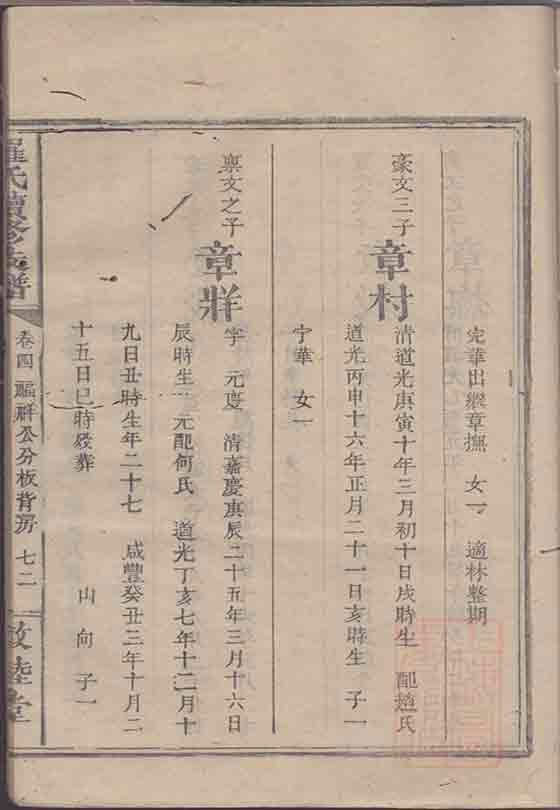 完華出繼章撫　女一　適林整期
豪文三子
章村
清道光庚寅十年三月初十日戌時生　配趙氏
道光丙申十六年正月二十一日亥時生　子一
宁華　女一
稟文之子
章祥
字　元度　清嘉慶庚辰二十五年三月十六日
辰時生　元配何氏　道光丁亥七年十二月十
九日丑時生年二十七　咸豐癸丑三年十月二
十五日巳時歿葬　山　向　子一
羅氏續修族譜
卷四　公分板背房　七二
敦陸堂